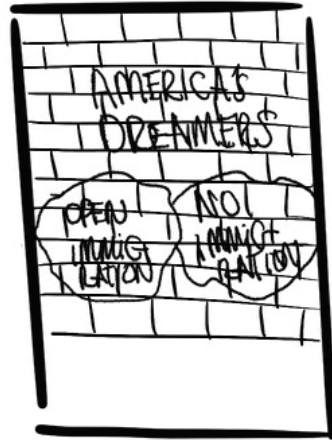 AMERICA'S
DREAMERS
OPEN
IMMIG
RATION
NO
IMMIG
RATION